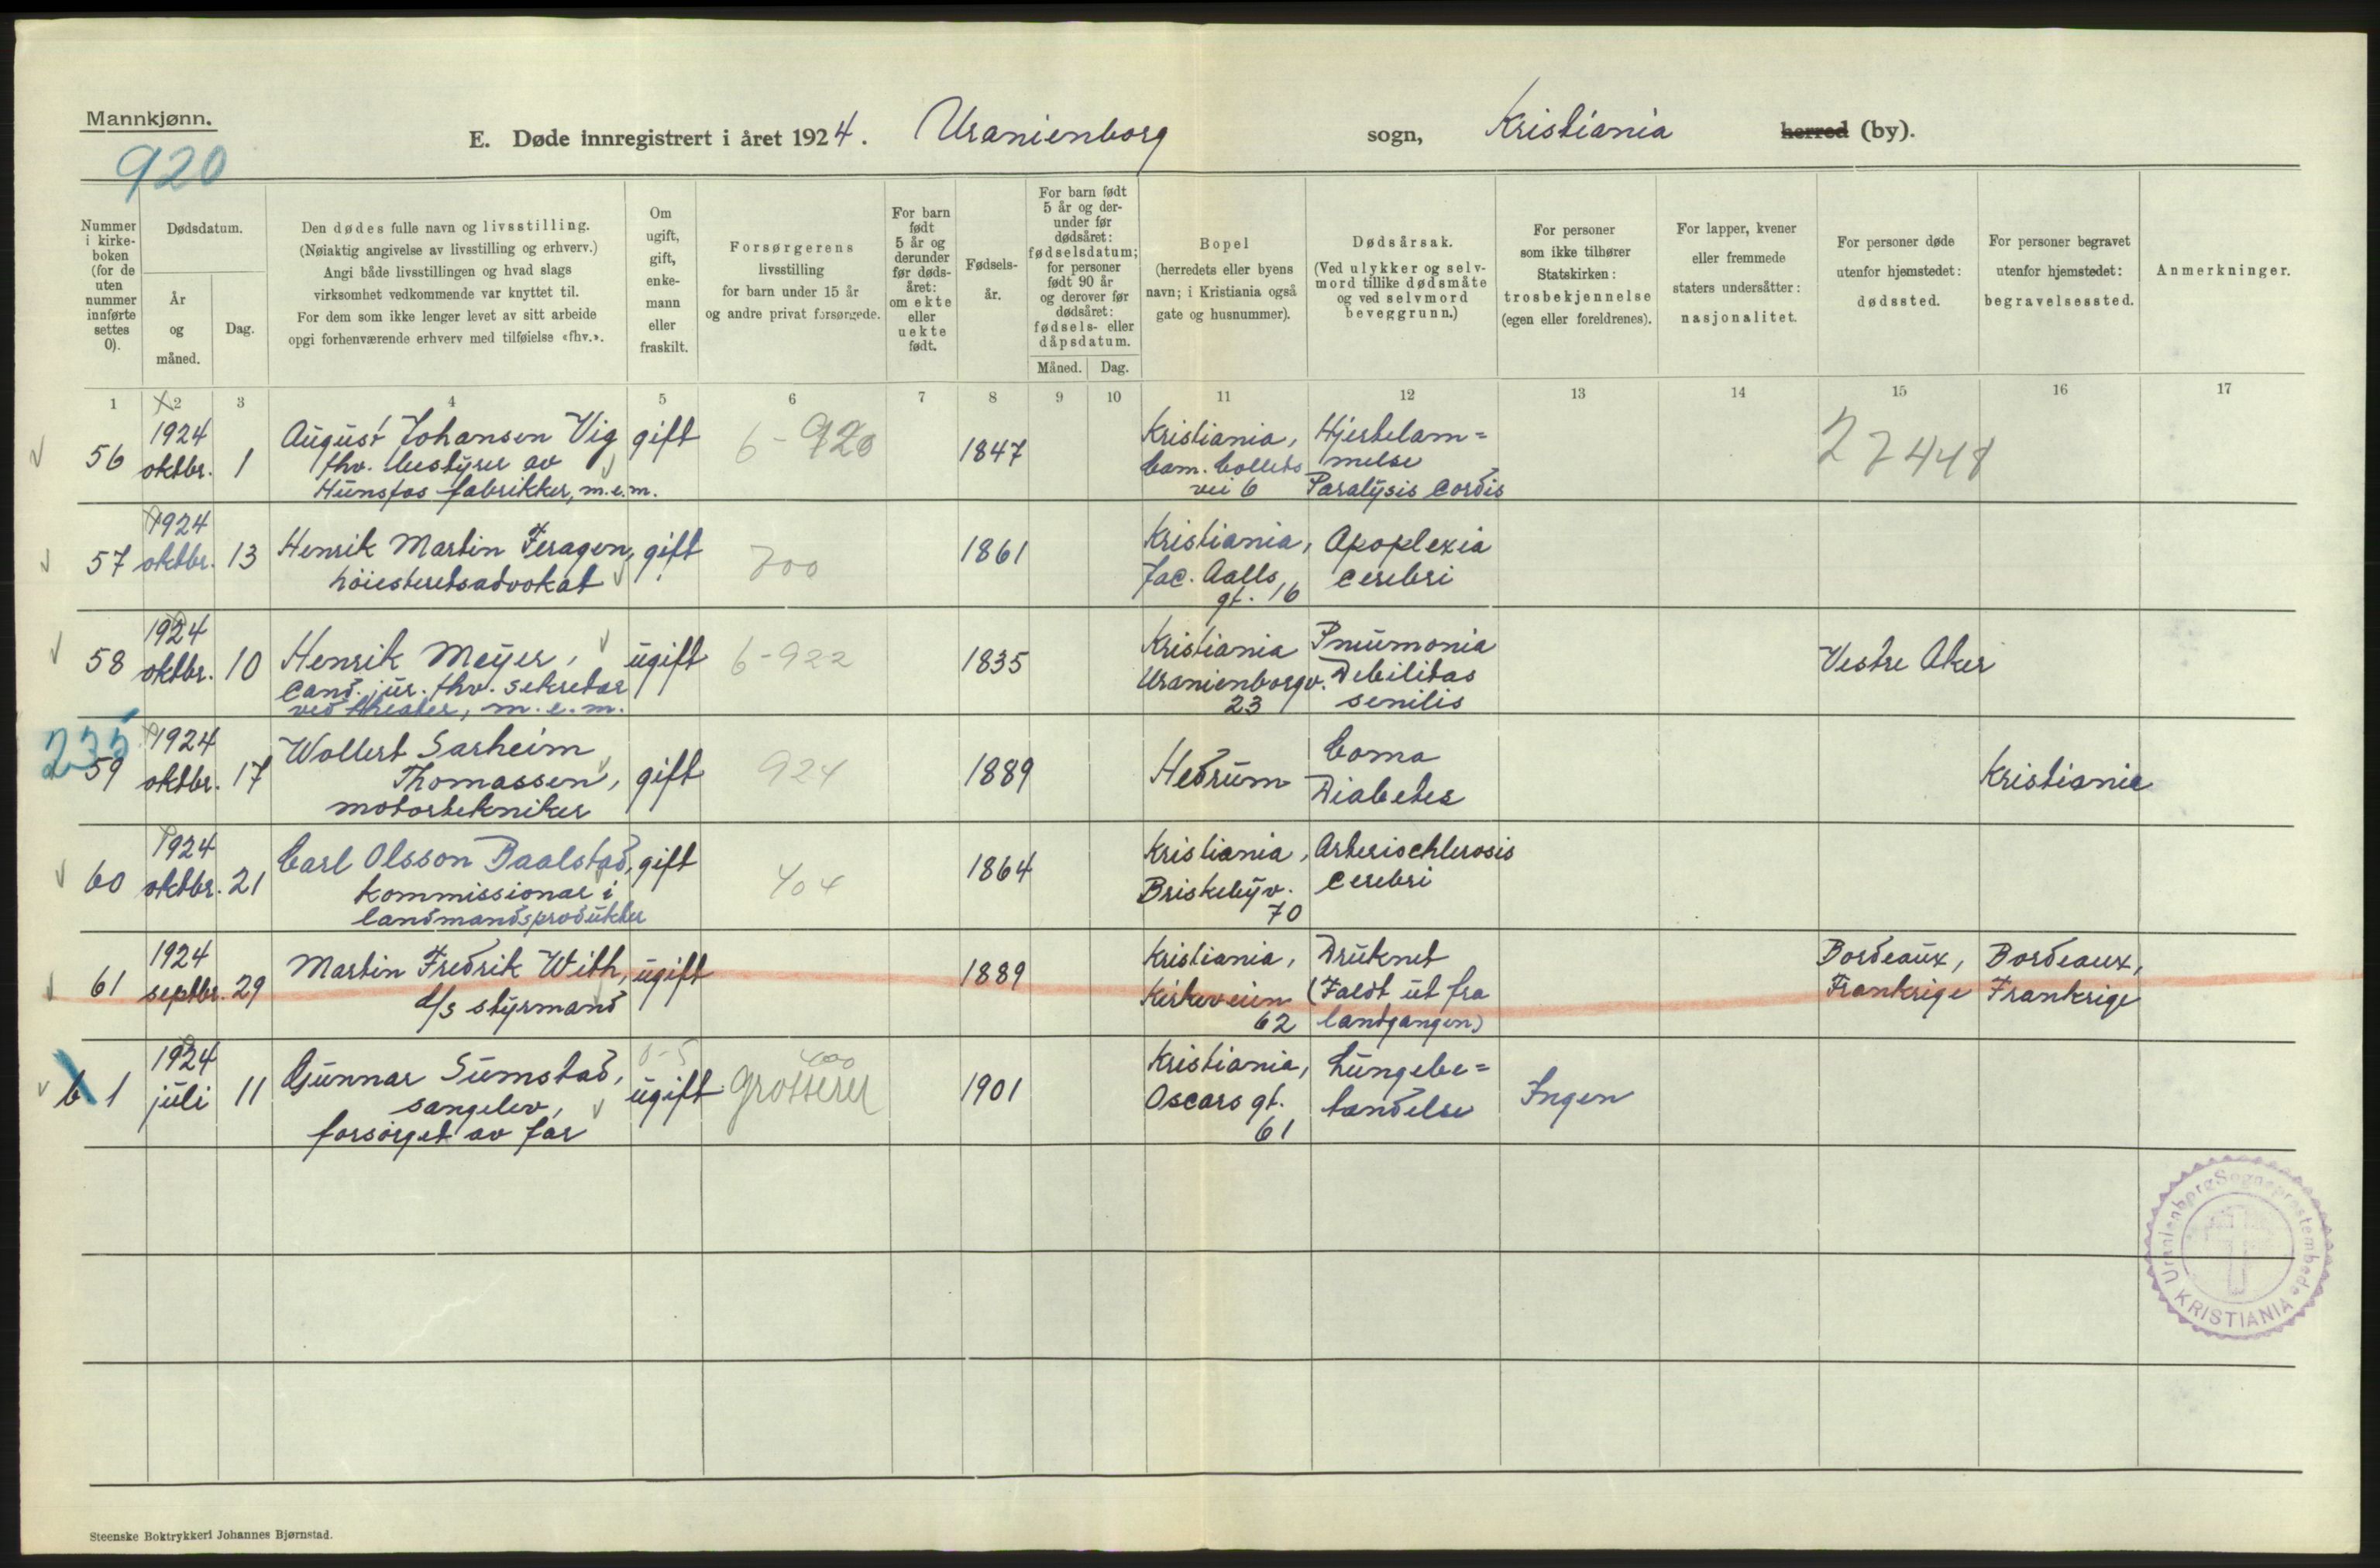 Mannkjønn.
920
E. Døde innregistrert i året 1924. Uranienborg sogn, Kristiania herred (by).
Nummer i kirkeboken (for de uten nummer innførte settes 0).
Dødsdatum.
År og måned.
Dag.
Den dødes fulle navn og livsstilling.
(Nøiaktig angivelse av livsstilling og erhverv.)
Angi både livsstillingen og hvad slags
virksomhet vedkommende var knyttet til.
For dem som ikke lenger levet av sitt arbeide
opgi forhenværende erhverv med tilføielse «fhv.».
Om ugift, gift, enkemann eller fraskilt.
Forsørgerens
livsstilling
for barn under 15 år
og andre privat forsørgede.
For barn født 5 år og derunder før dødsåret: om ekte eller uekte født.
Fødselsår.
For barn født 5 år og derunder før dødsåret: fødselsdatum; for personer født 90 år og derover før dødsåret: fødsels- eller dåpsdatum.
Måned. Dag.
Bopel
(herredets eller byens
navn; i Kristiania også
gate og husnummer).
Dødsårsak.
(Ved ulykker og selvmord tillike dødsmåte og ved selvmord beveggrunn.)
For personer
som ikke tilhører
Statskirken:
trosbekjennelse
(egen eller foreldrenes).
For lapper, kvener
eller fremmede
staters undersåtter:
nasjonalitet.
For personer døde
utenfor hjemstedet:
dødssted.
For personer begravet
utenfor hjemstedet:
begravelsessted.
Anmerkninger.
1 2 3 4 5 6 7 8 9 10 11 12 13 14 15 16 17
56 1924 oktbr. 1
August Johansen Vig
fhv. bestyrer av
Hunsfos fabrikker, m.e.m.
gift
6-920
1847
Kristiania,
Cam. Colletts
vei 6
Hjertelam=
melse
Paralysis cordis
27448
57 1924 oktbr. 13
Henrik Martin Feragen,
höiesteretsadvokat
gift
700
1861
Kristiania,
Jac. Aalls
gt. 16
Apoplexia
cerebri
58 1924 oktbr. 10
Henrik Meyer,
cand. jur. fhv. sekretær
ved theater, m.e.m.
ugift
6-922
1835
Kristiania
Uranienborgv.
23
Pneumonia
Debilitas
senilis
Vestre Aker
235
59 1924 oktbr. 17
Wollert Sarheim
Thomassen,
motortekniker
gift
924
1889
Hedrum
Coma
Diabetes
Kristiania
60 1924 oktbr. 21
Carl Olsson Baalstad,
kommissionær i
landmandsprodukter
gift
404
1864
Kristiania,
Briskebyv.
70
Arteriochlerosis
cerebri
61 1924 septbr. 29
Martin Fredrik With,
d/s styrmand
ugift
1889
Kristiania,
Kirkeveien
62
Druknet
(Faldt ut fra
landgangen)
Bordeaux,
Frankrige
Bordeaux,
Frankrige
6 1 1924 juli 11
Gunnar Sumstad,
sangelev,
forsörget av far
0-5
ugift
400
grosserer
1901
Kristiania,
Oscars gt.
61
Lungebe=
tændelse
Ingen
Uranienborg Sogneprestembede
KRISTIANIA
Steenske Boktrykkeri Johannes Bjørnstad.